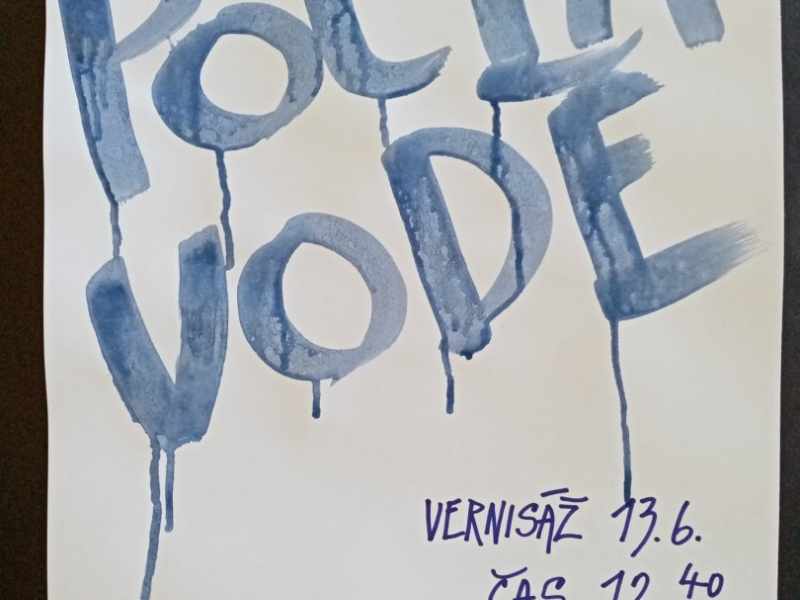 POCTA
VODE
VERNISÁŽ 13.6.
ČAS 12 40